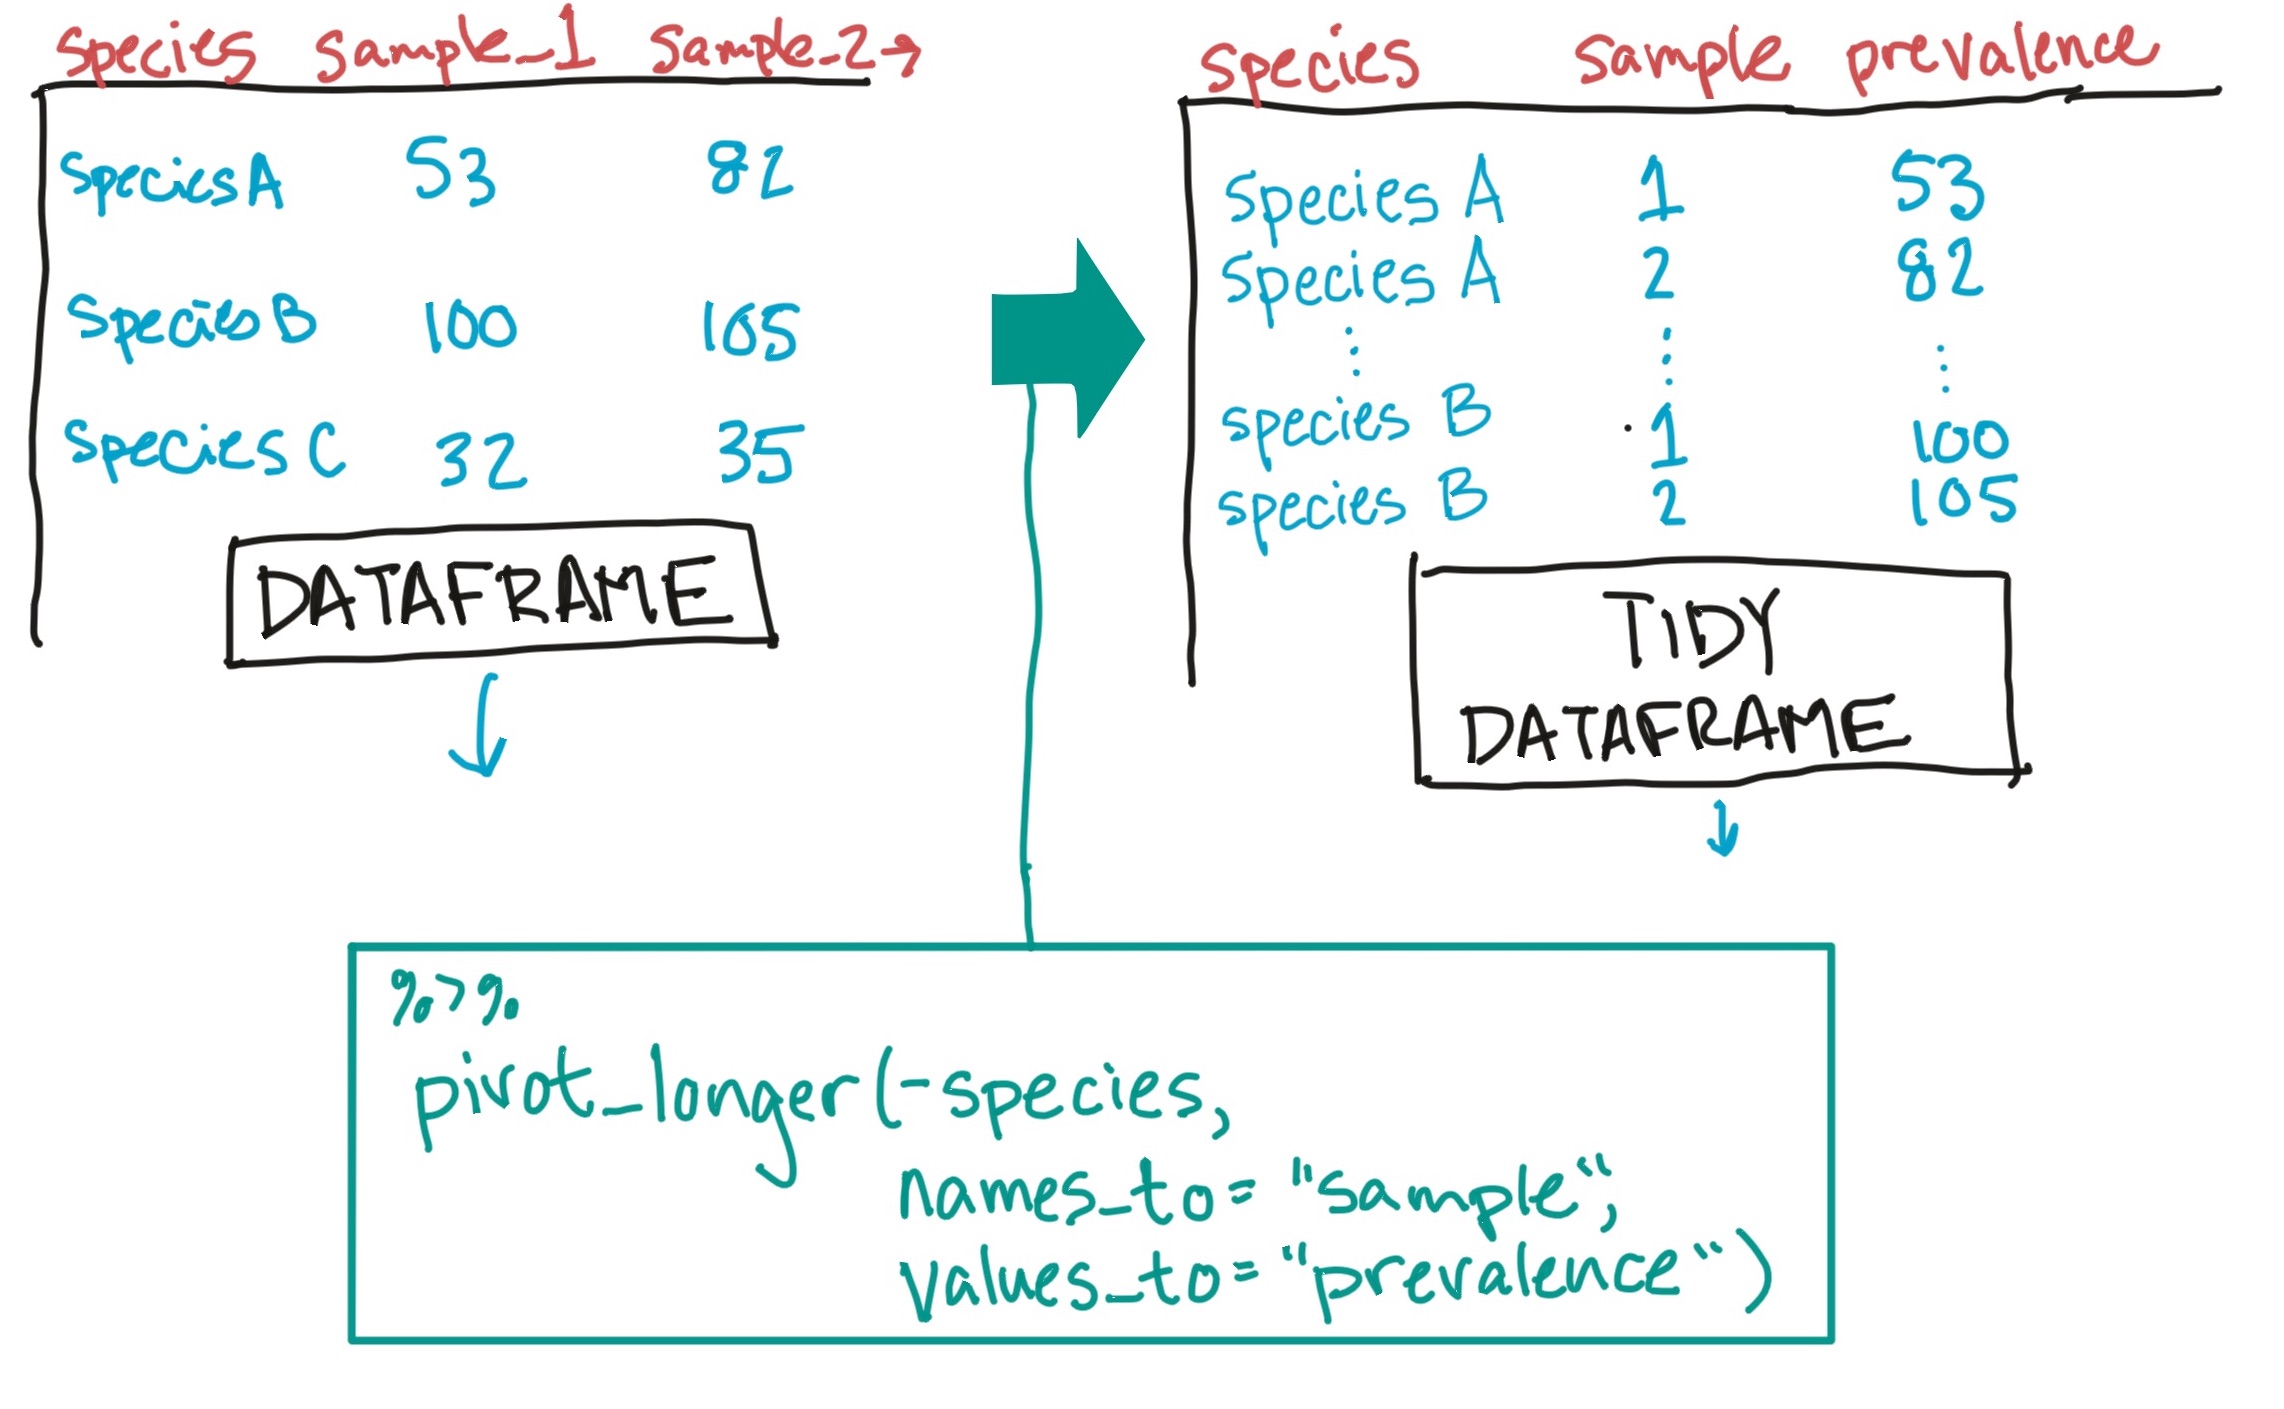 species sample_1 sample_2→
species A 53 82
species B 100 105
species C 32 35
DATAFRAME
species sample prevalence
species A 1 53
species A 2 82
species B 1 100
species B 2 105
TIDY
DATAFRAME
%>%
pivot_longer(-species,
names_to="sample",
values_to="prevalence")